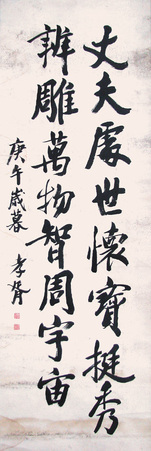 丈夫處世懷寶挺秀
辨雕萬物智周宇宙
庚午歲暮 孝胥